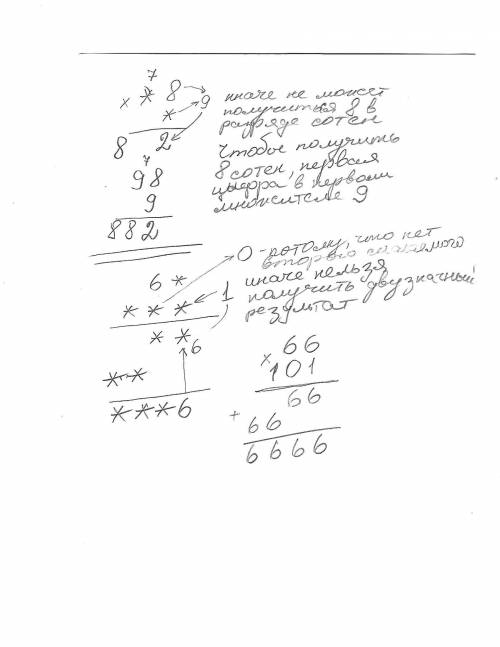 7
× * 8 9 иначе не может
* получиться 8 в
8 2 разряде сотен
7 Чтобы получить
98 8 сотен, первая
9 цыфра в первом
882 множителе 9
0 - потому, что нет
второго слагаемого
6 *
* * * 1 иначе нельзя
получить двузначный
результат
* * 6
* *
* * * 6
66
× 101
66
+ 66
6666